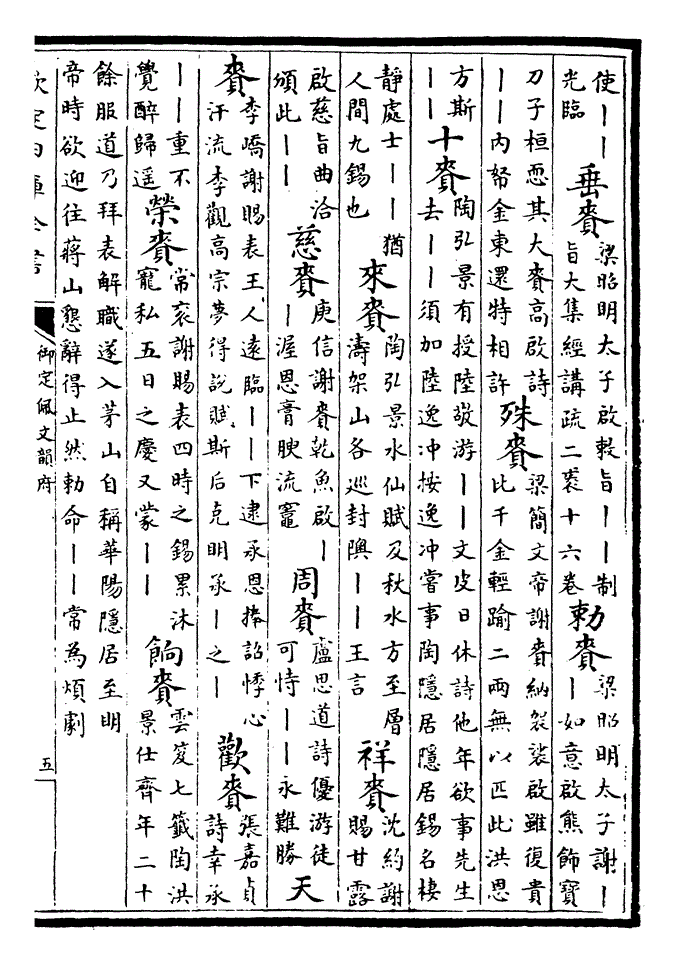 使｜｜
光臨
垂賚
梁昭明太子啟敕旨｜｜制
旨大集經講疏二袠十六卷
勅賚
梁昭明太子謝｜
｜如意啟熊飾寶
刀子桓恧其大賚高啟詩
｜｜内帑金東還特相許
殊賚
梁簡文帝謝賚納袈裟啟雖復貴
比千金輕踰二兩無以匹此洪恩
方斯
｜｜
十賚
陶弘景有授陸敬游｜｜文皮日休詩他年欲事先生
去｜｜須加陸逸冲按逸冲嘗事陶隱居隱居錫名棲
靜處士｜｜猶
人間九錫也
來賚
陶弘景水仙賦及秋水方至層
濤架山各巡封隩｜｜王言
祥賚
沈約謝
賜甘露
啟慈旨曲洽
頒此｜｜
慈賚
庾信謝賚乾魚啟｜
｜渥恩膏腴流竈
周賚
盧思道詩優游徒
可恃｜｜永難勝
天
賚
李嶠謝賜表王人遠臨｜｜下逮承恩捧詔悸心
汗流李觀高宗夢得說賦斯后克明承｜之｜
歡賚
張嘉貞
詩幸承
｜｜重不
覺醉歸遥
榮賚
常袞謝賜表四時之錫累沐
寵私五日之慶又蒙｜｜
餉賚
雲笈七籤陶洪
景仕齊年二十
餘服道乃拜表解職遂入茅山自稱華陽隱居至明
帝時欲迎往蔣山懇辭得止然勅命｜｜常為煩劇
欽定四庫全書
御定佩文韻府
五